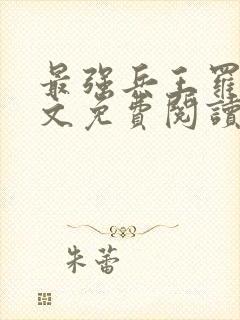 最强兵王罗
文免費閱讀
朱蕾